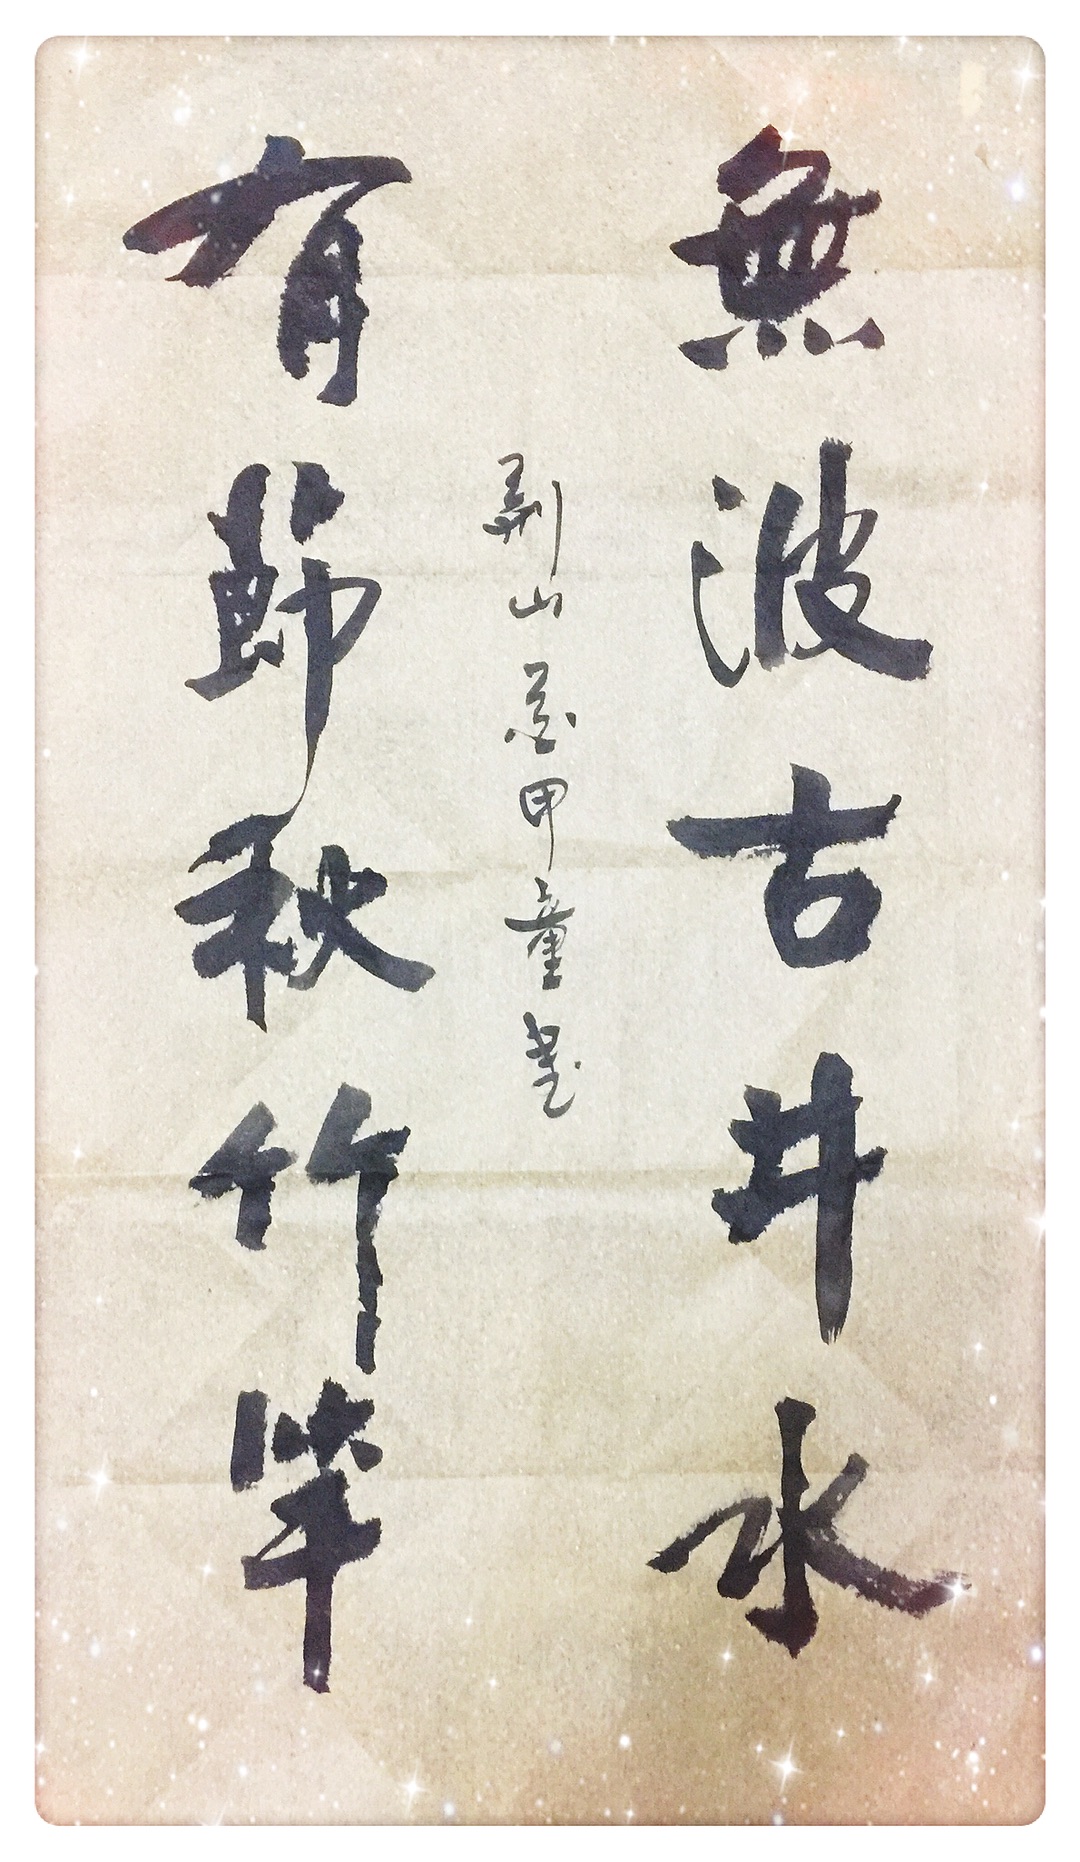 無波古井水
有節秋竹竿
荆山花甲童書